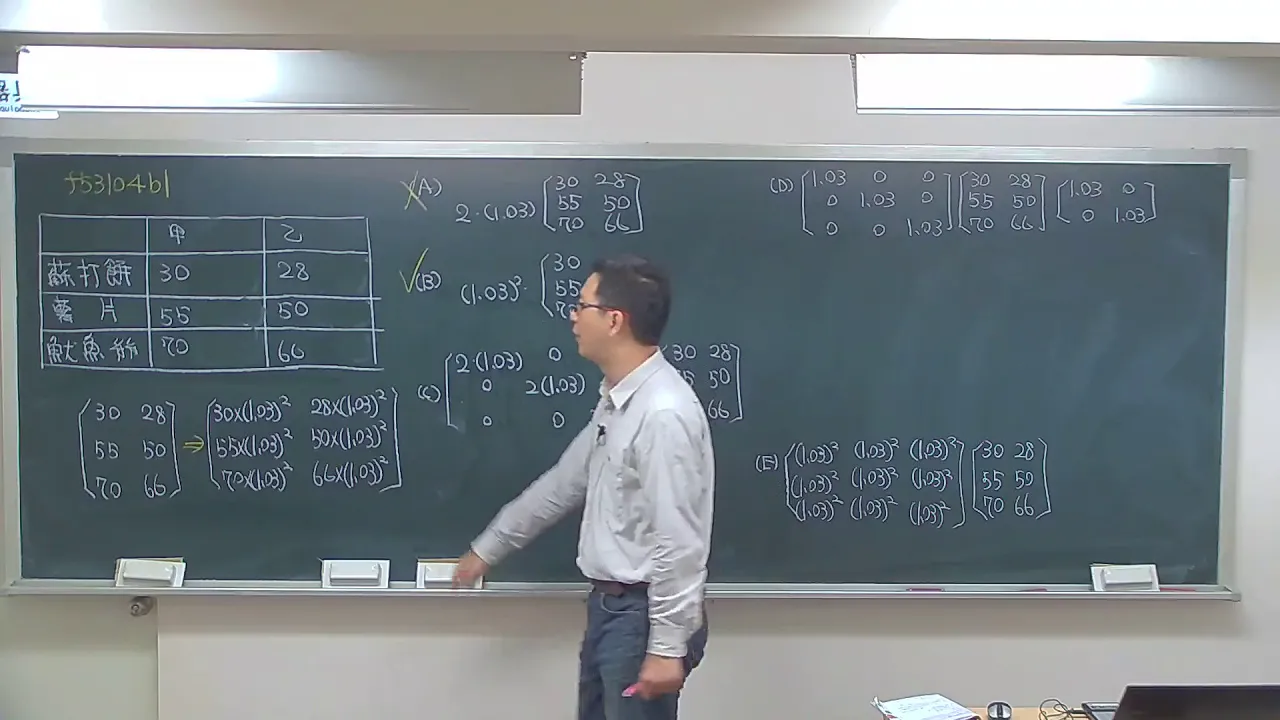 f53104b1
甲 乙
蘇打餅 30 28
薯片 55 50
魷魚絲 70 66
[30 28
55 50
70 66]
⇒
[30×(1.03)² 28×(1.03)²
55×(1.03)² 50×(1.03)²
70×(1.03)² 66×(1.03)²]
(A) 2·(1.03)
[30 28
55 50
70 66]
(B) (1.03)²·
[30
55
(C)
[2·(1.03) 0
0 2(1.03)
0 0
30 28
50
66]
(D)
[1.03 0 0
0 1.03 0
0 0 1.03]
[30 28
55 50
70 66]
[1.03 0
0 1.03]
(E)
[(1.03)² (1.03)² (1.03)²
(1.03)² (1.03)² (1.03)²
(1.03)² (1.03)² (1.03)²]
[30 28
55 50
70 66]